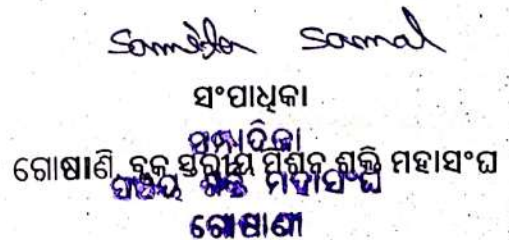 Samal
ସଂପାଧିକା
ସମ୍ପାଦିକା
ଗୋଷାଣି ବ୍ଲକ ସ୍ତରୀୟ ମିଶନ ଶକ୍ତି ମହାସଂଘ
ମହାସଂଘ
ଗୋଷାଣୀ